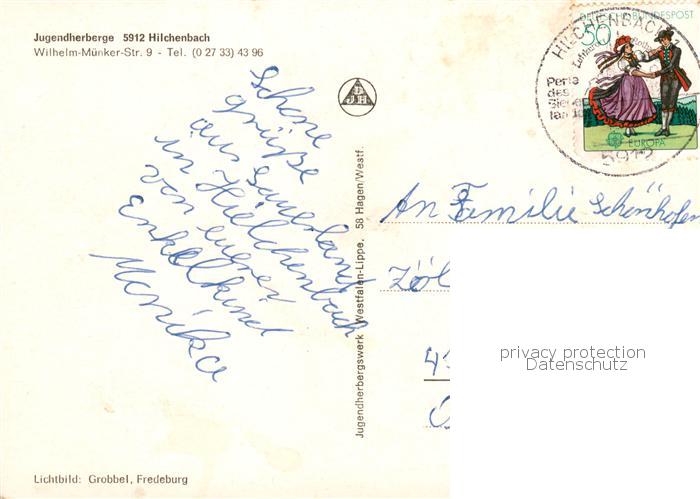 Jugendherberge 5912 Hilchenbach
Wilhelm-Münker-Str. 9 - Tel. (0 27 33) 43 96
Schöne
grüße
aus Sauerland
in Hielchenbach
von eurer
Enkelkind
Monika
DJH
Jugendherbergswerk Westfalen-Lippe, 58 Hagen/Westf.
HILCHENBACH 1
Perle
des
5912
DEUTSCHE BUNDESPOST
50
EUROPA
An Familie Schönhofen
Zöl
privacy protection
Datenschutz
Lichtbild: Grobbel, Fredeburg